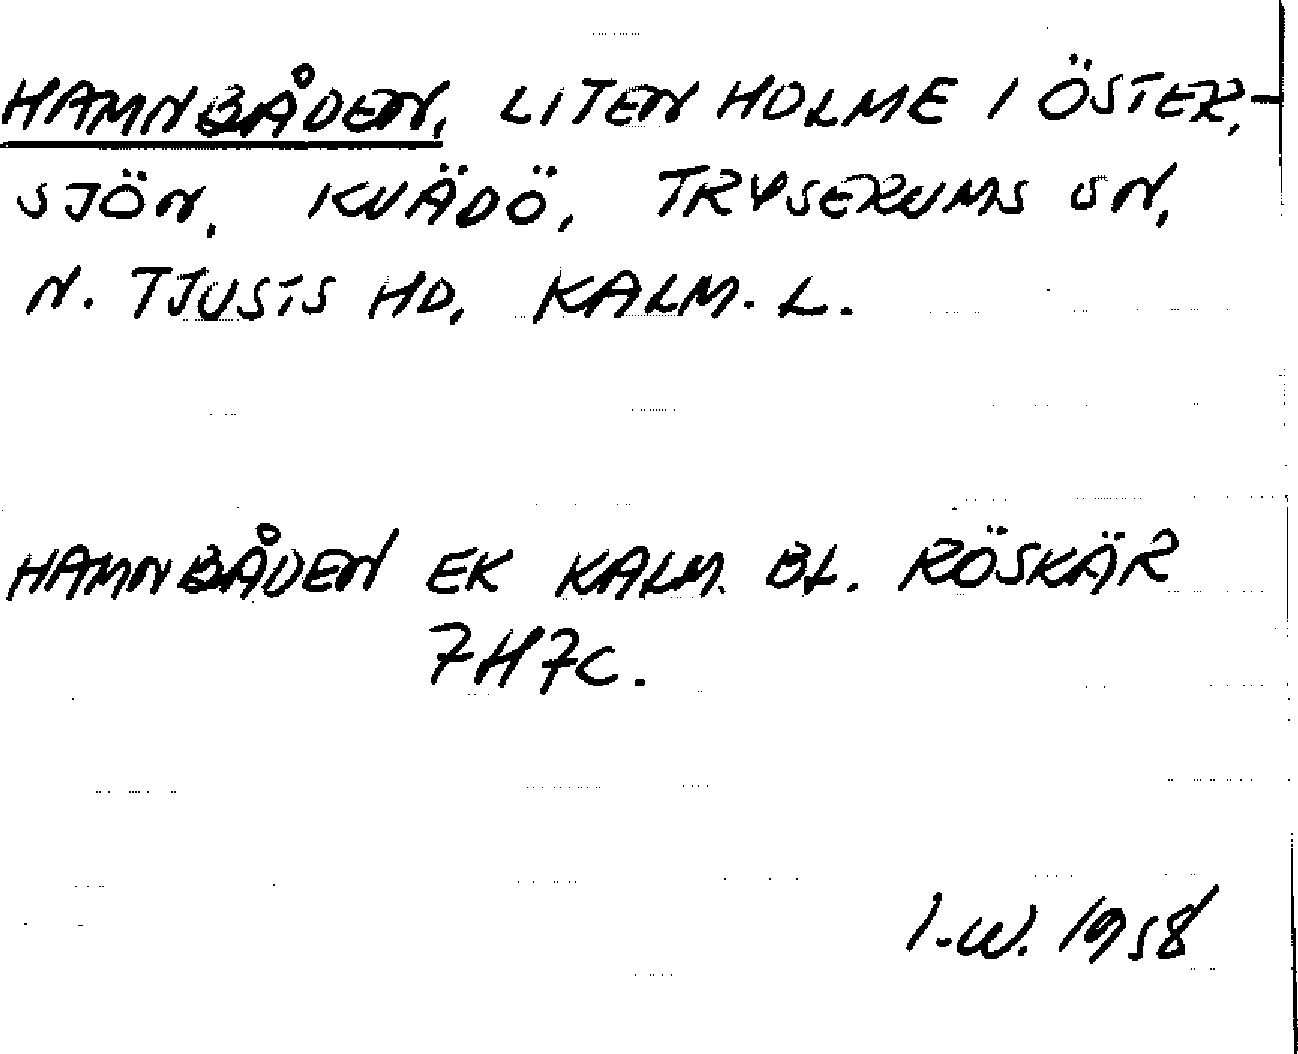 HAMNBÅDEN, LITEN HOLME I ÖSTER,-
SJÖN, KVÄDÖ, TRYSERUMS SN,
N. TJUSTS HD, KALM. L.
HAMNBÅDEN EK KALM. BL. RÖSKÄR
7H7C.
I.W. 1958